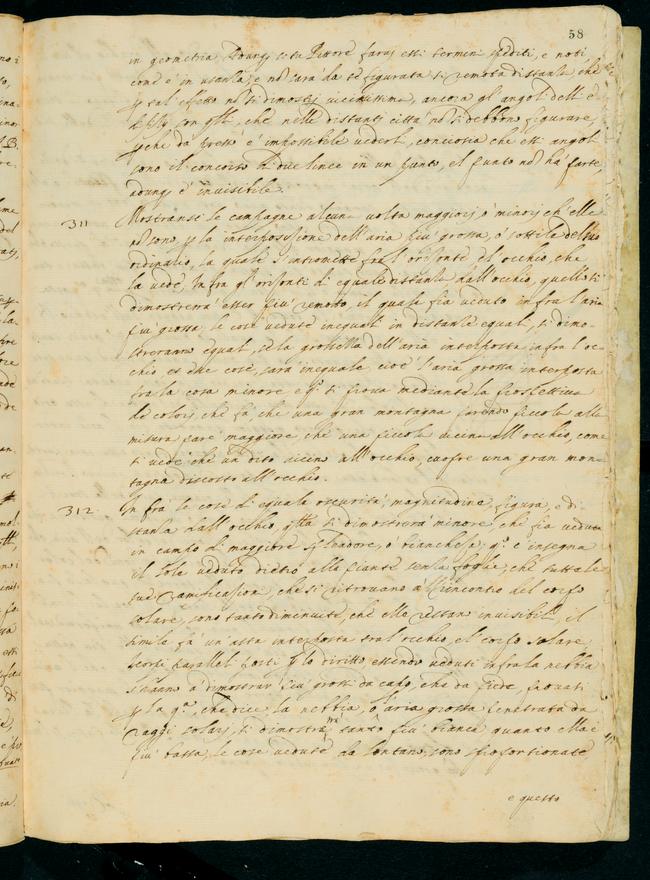 58
in geometria, Adunq; se tu Pittore farai essi termini spediti, e noti,
come è in usanza, e nõ sarà da te figurata sì remota distanza, che
p tal' effetto nõ si dimostri vicinissima, ancora gl'angoli dell'
edifitij, son q̃lli, che nelle distanti città nõ si debbono figurare,
p che da presso è impossibile vederli, conciosia che essi angoli
sono il concorso di due linee in un punto, e'l punto nõ ha' parte,
adunq; è invisibile.
311 Mostransi le campagne alcuna volta maggiori, ò minori ch'elle
nõ sono, p la interposizione dell'aria più grossa, ò sottile del suo
ordinario, la quale s'intromette fra l'orizonte e l'occhio, che
la vede, Infra gl'orizonti di equale distanza dall'occhio, quello si
dimostrerà esser più remoto, il quale fia veduto infra l'aria
più grossa; le cose vedute inequali in distanza equali, si dimo-
streranno equali, se la grossezza dell'aria interposta infra l'oc-
chio et esse cose, sarà inequale, cioè l'aria grossa interposta
fra la cosa minore e q° si prova mediante la prospettiva
de colori, che fa che una gran montagna parendo piccola alla
misura pare maggiore che una piccola vicina all'occhio, come
si vede che un dito vicino all'occhio, cuopre una gran mon-
tagna discosto all'occhio.
312 In frà le cose di equale oscurità, magnitudine, figura, e di-
stanza dall'occhio, q̃lla si dimostrerà minore che fia veduta
in campo di maggiore splendore, ò bianchezza; q° c'insegna
il sole veduto dietro alle piante senza foglie, che tutte le
sue ramificazioni, che si ritrovano all'incontro del corpo
solare, sono tanto diminuite, che elle restano invisibili, il
simile fà un'asta interposta tra l'occhio, e'l corpo solare,
corpi paralleli posti p lo diritto, essendo veduti infra la nebbia
s'hanno à dimostrar più grossi da capo, che da piede, provasi
p la 9ª, che dice, la nebbia, ò l'aria grossa penetrata da
raggi solari, si dimostrerà tanto più bianca quanto ella è
più bassa; le cose vedute da lontano, sono sproportionate
e questo